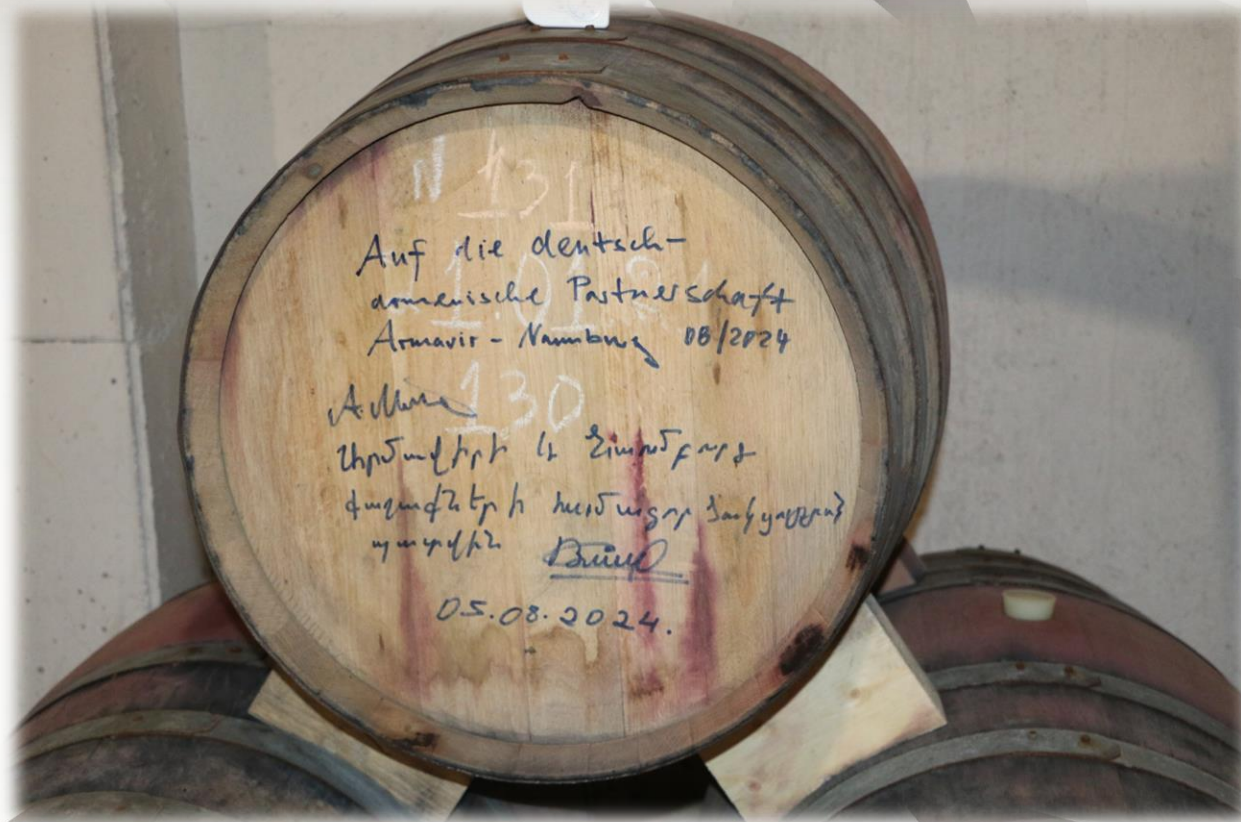 N 131
Auf die deutsch-
armenische Partnerschaft
1.01.2
Armavir - Naumburg 08/2024
130
Արմավիրի և Նաումբուրգ
քաղաքների համար
պատվին
05.08.2024.